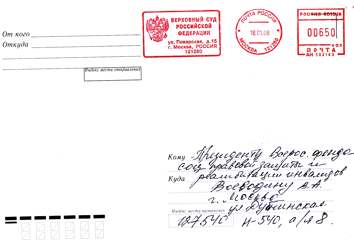 От кого
Откуда
ВЕРХОВНЫЙ СУД
РОССИЙСКОЙ
ФЕДЕРАЦИИ
ул. Поварская, д.15
г. Москва, РОССИЯ
121260
ПОЧТА РОССИИ
18.01.08
МОСКВА 121260
00650
ПОЧТА
Индекс места отправления
Кому Президенту Всерос. фонда
соц. правовой защиты и
реабилитации инвалидов
Куда Воеводину В.А.
г. Москва
Индекс места назначения ул. Дубнинская
127540 И-540, а/я 8.